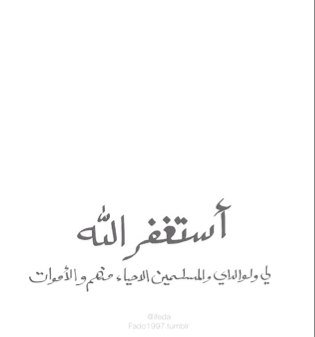 أستغفر الله
لي ولوالداي والمسلمين الاحياء منهم والأموات
@feda
Fado1997.tumblr